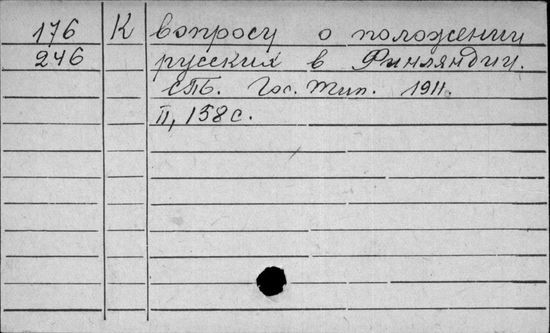 176 К вопросу о положении
246 русских в Финляндии.
СПБ. Гос. тип. 1911.
II, 158 с.